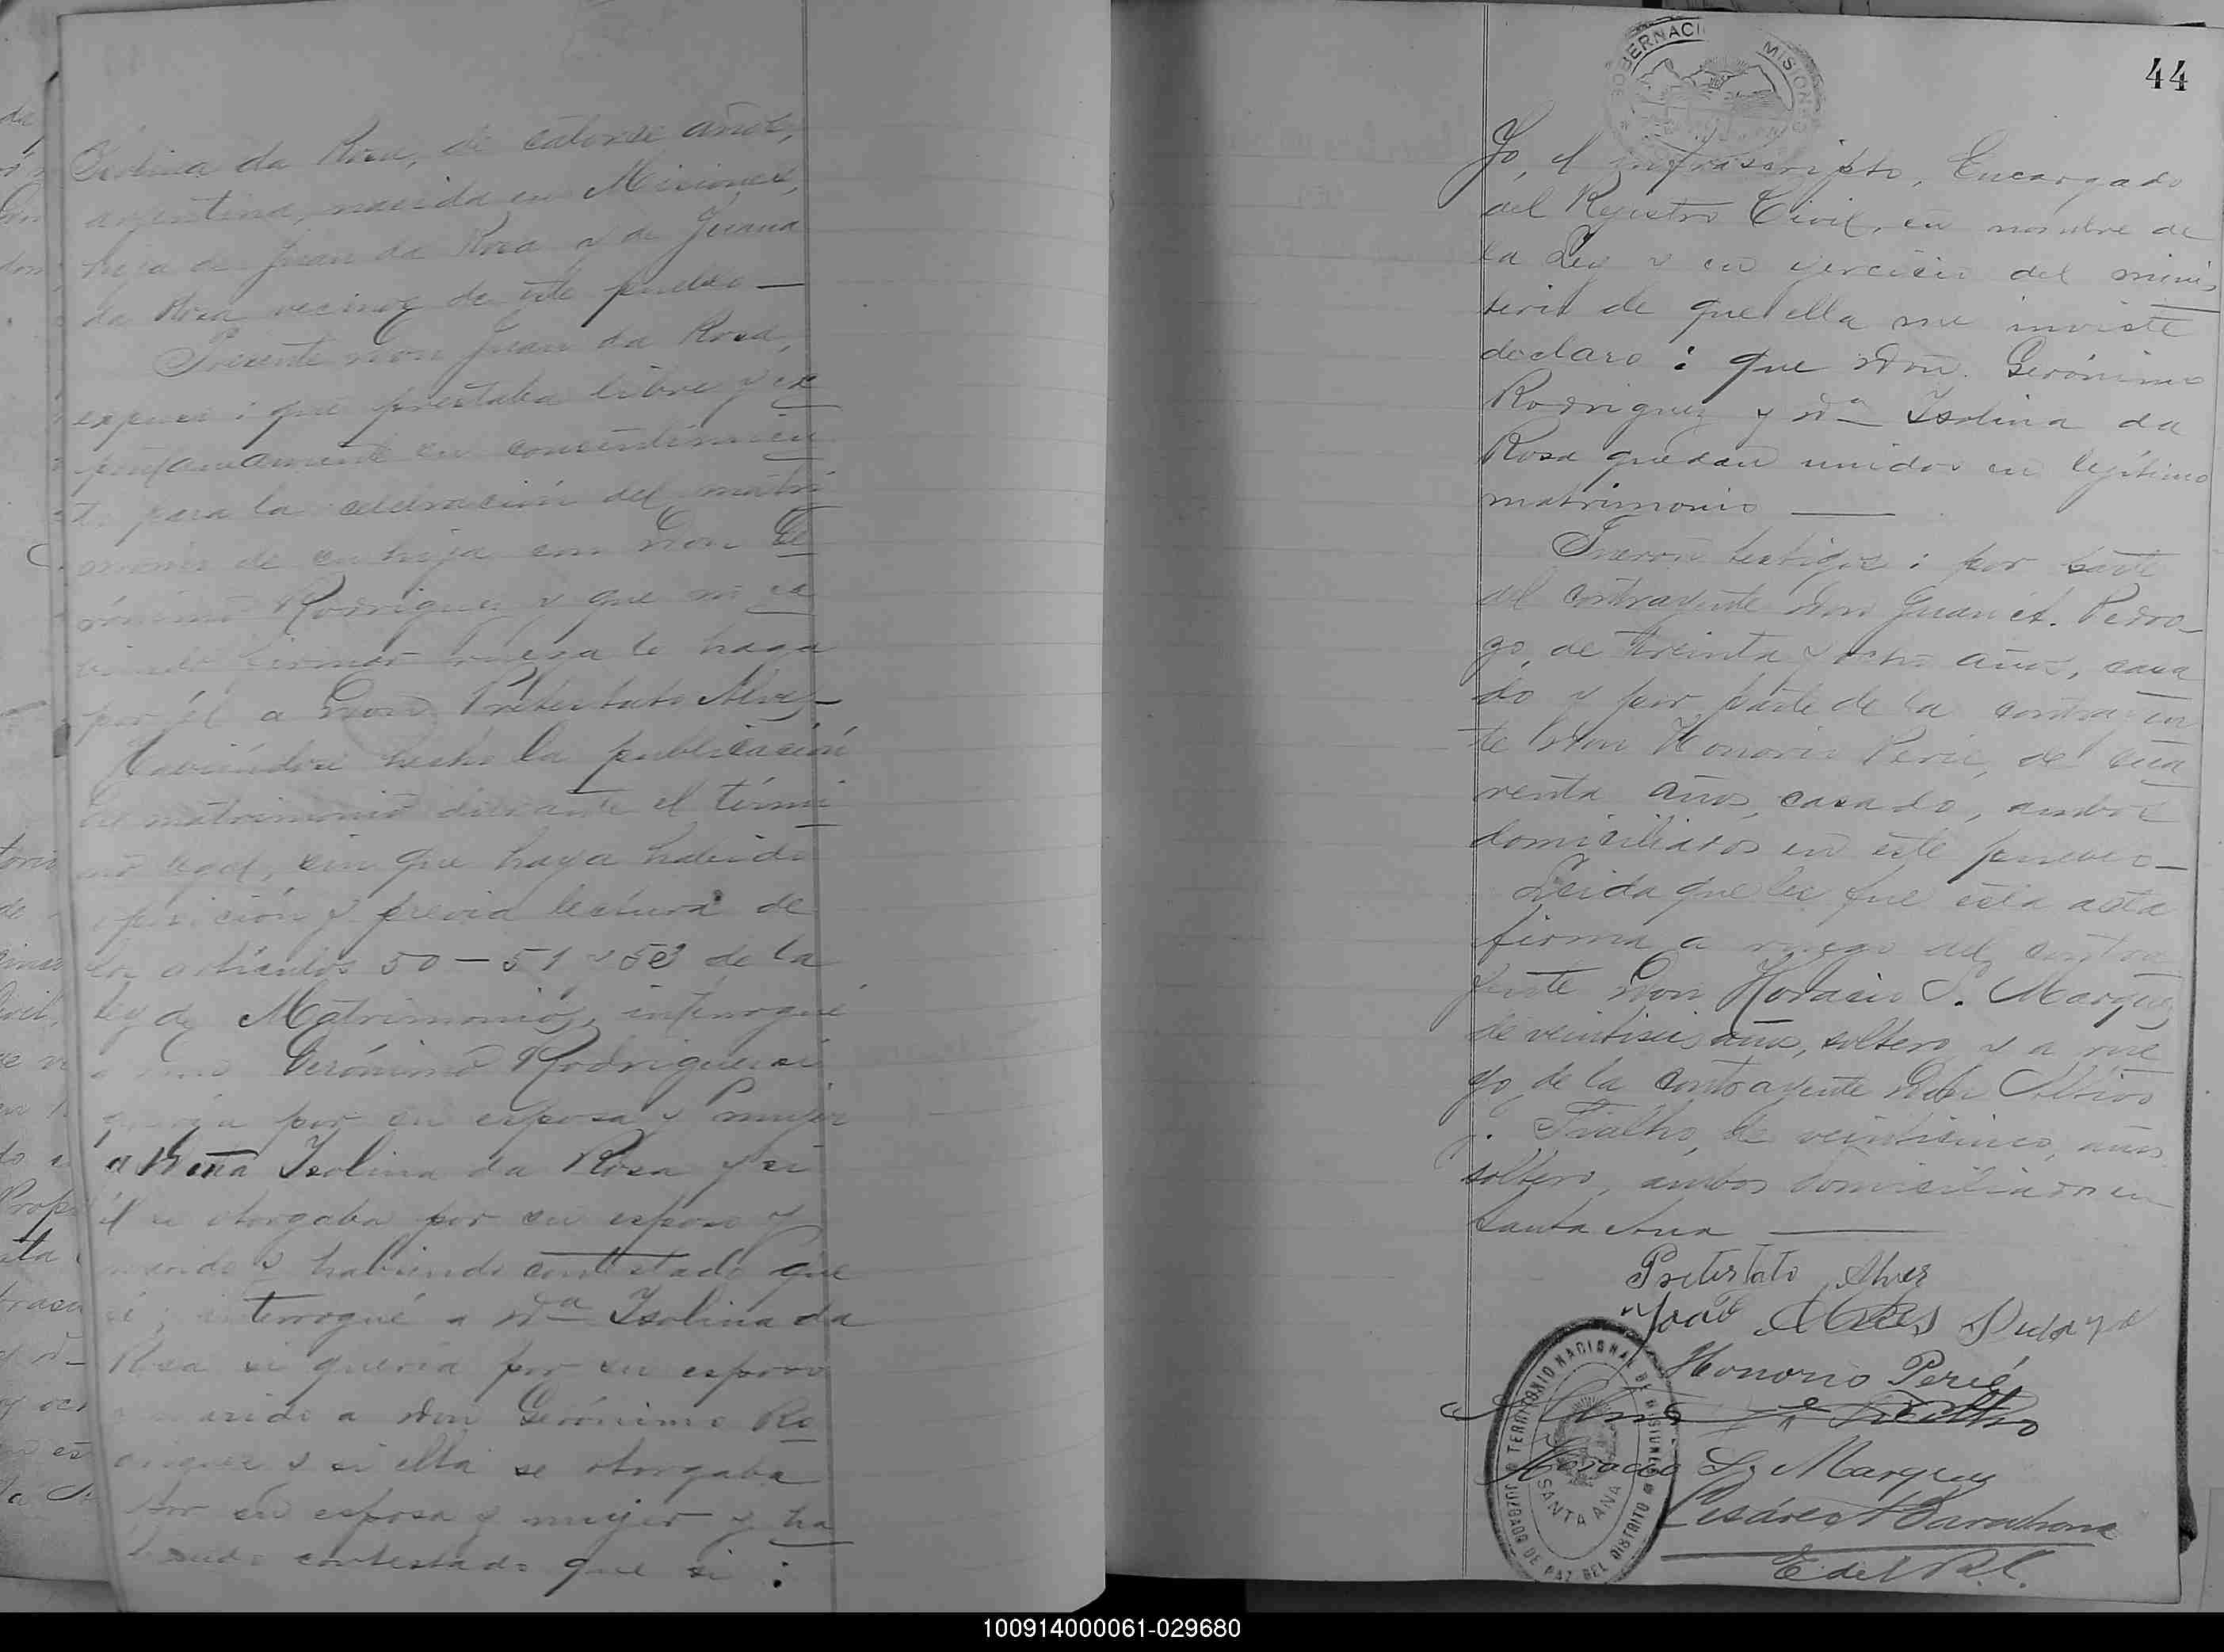 Isolina da Rosa, de catorce años,
argentina, nacida en Misiones,
hija de Juan da Rosa y de Juana
da Rosa vecinos de este pueblo —
Presente Don Juan da Rosa,
expuso: que prestaba libre y es
pontaneamente su consentimien
to para la celebración del matri
monio de su hija con Don Ge
rónimo Rodriguez y que no sa
biendo firmar ruega lo haga
por él a Don Pretextato Alves —
Haviéndose hecho la publicación
del matrimonio durante el térmi
no legal, sin que haya habido
oposición y previa lectura de
los artículos 50 – 51 y 53 de la
ley de Matrimonio, interrogué
a Don Gerónimo Rodriguez si
quería por su esposa y mujer
a Doña Isolina da Rosa y si
él se otorgaba por su esposo y
marido y habiendo contestado que
sí; interrogué a Dª Isolina da
Rosa si quería por su esposo
y marido a Don Gerónimo Ro
driguez y si ella se otorgaba
por su esposa y mujer y ha
biendo contestado que si:
44
GOBERNACI MISIONES
Yo, el infrascripto, Encargado
del Registro Civil, en nombre de
la Ley y en ejercicio del minis
terio de que ella me inviste
declaro: que Don Gerónimo
Rodriguez y Dª Isolina da
Rosa quedan unidos en legítimo
matrimonio —
Fueron testigos: por parte
del contrayente Don Juan A. Pedro
zo, de treinta y ocho años, casa
do y por parte de la contrayen
te Don Honorio Perié, de cua
renta años, casado, ambos
domiciliados en este pueblo —
Leida que les fue esta acta
firma a ruego del contra
yente Don Horacio S. Marquez
de veintiseis años, soltero y a rue
go de la contrayente Don
J. Fialho, de veinticinco años
soltero, ambos domiciliados en
Santa Ana —
Pretextato Alves
Honorio Perié
Fialho
Horacio S. Marquez
Cesáreo Barahona
E del R. C.
JUZGADO DE PAZ DEL DISTRITO
TERRITORIO NACIONAL DE MISIONES
SANTA ANA
100914000061-029680